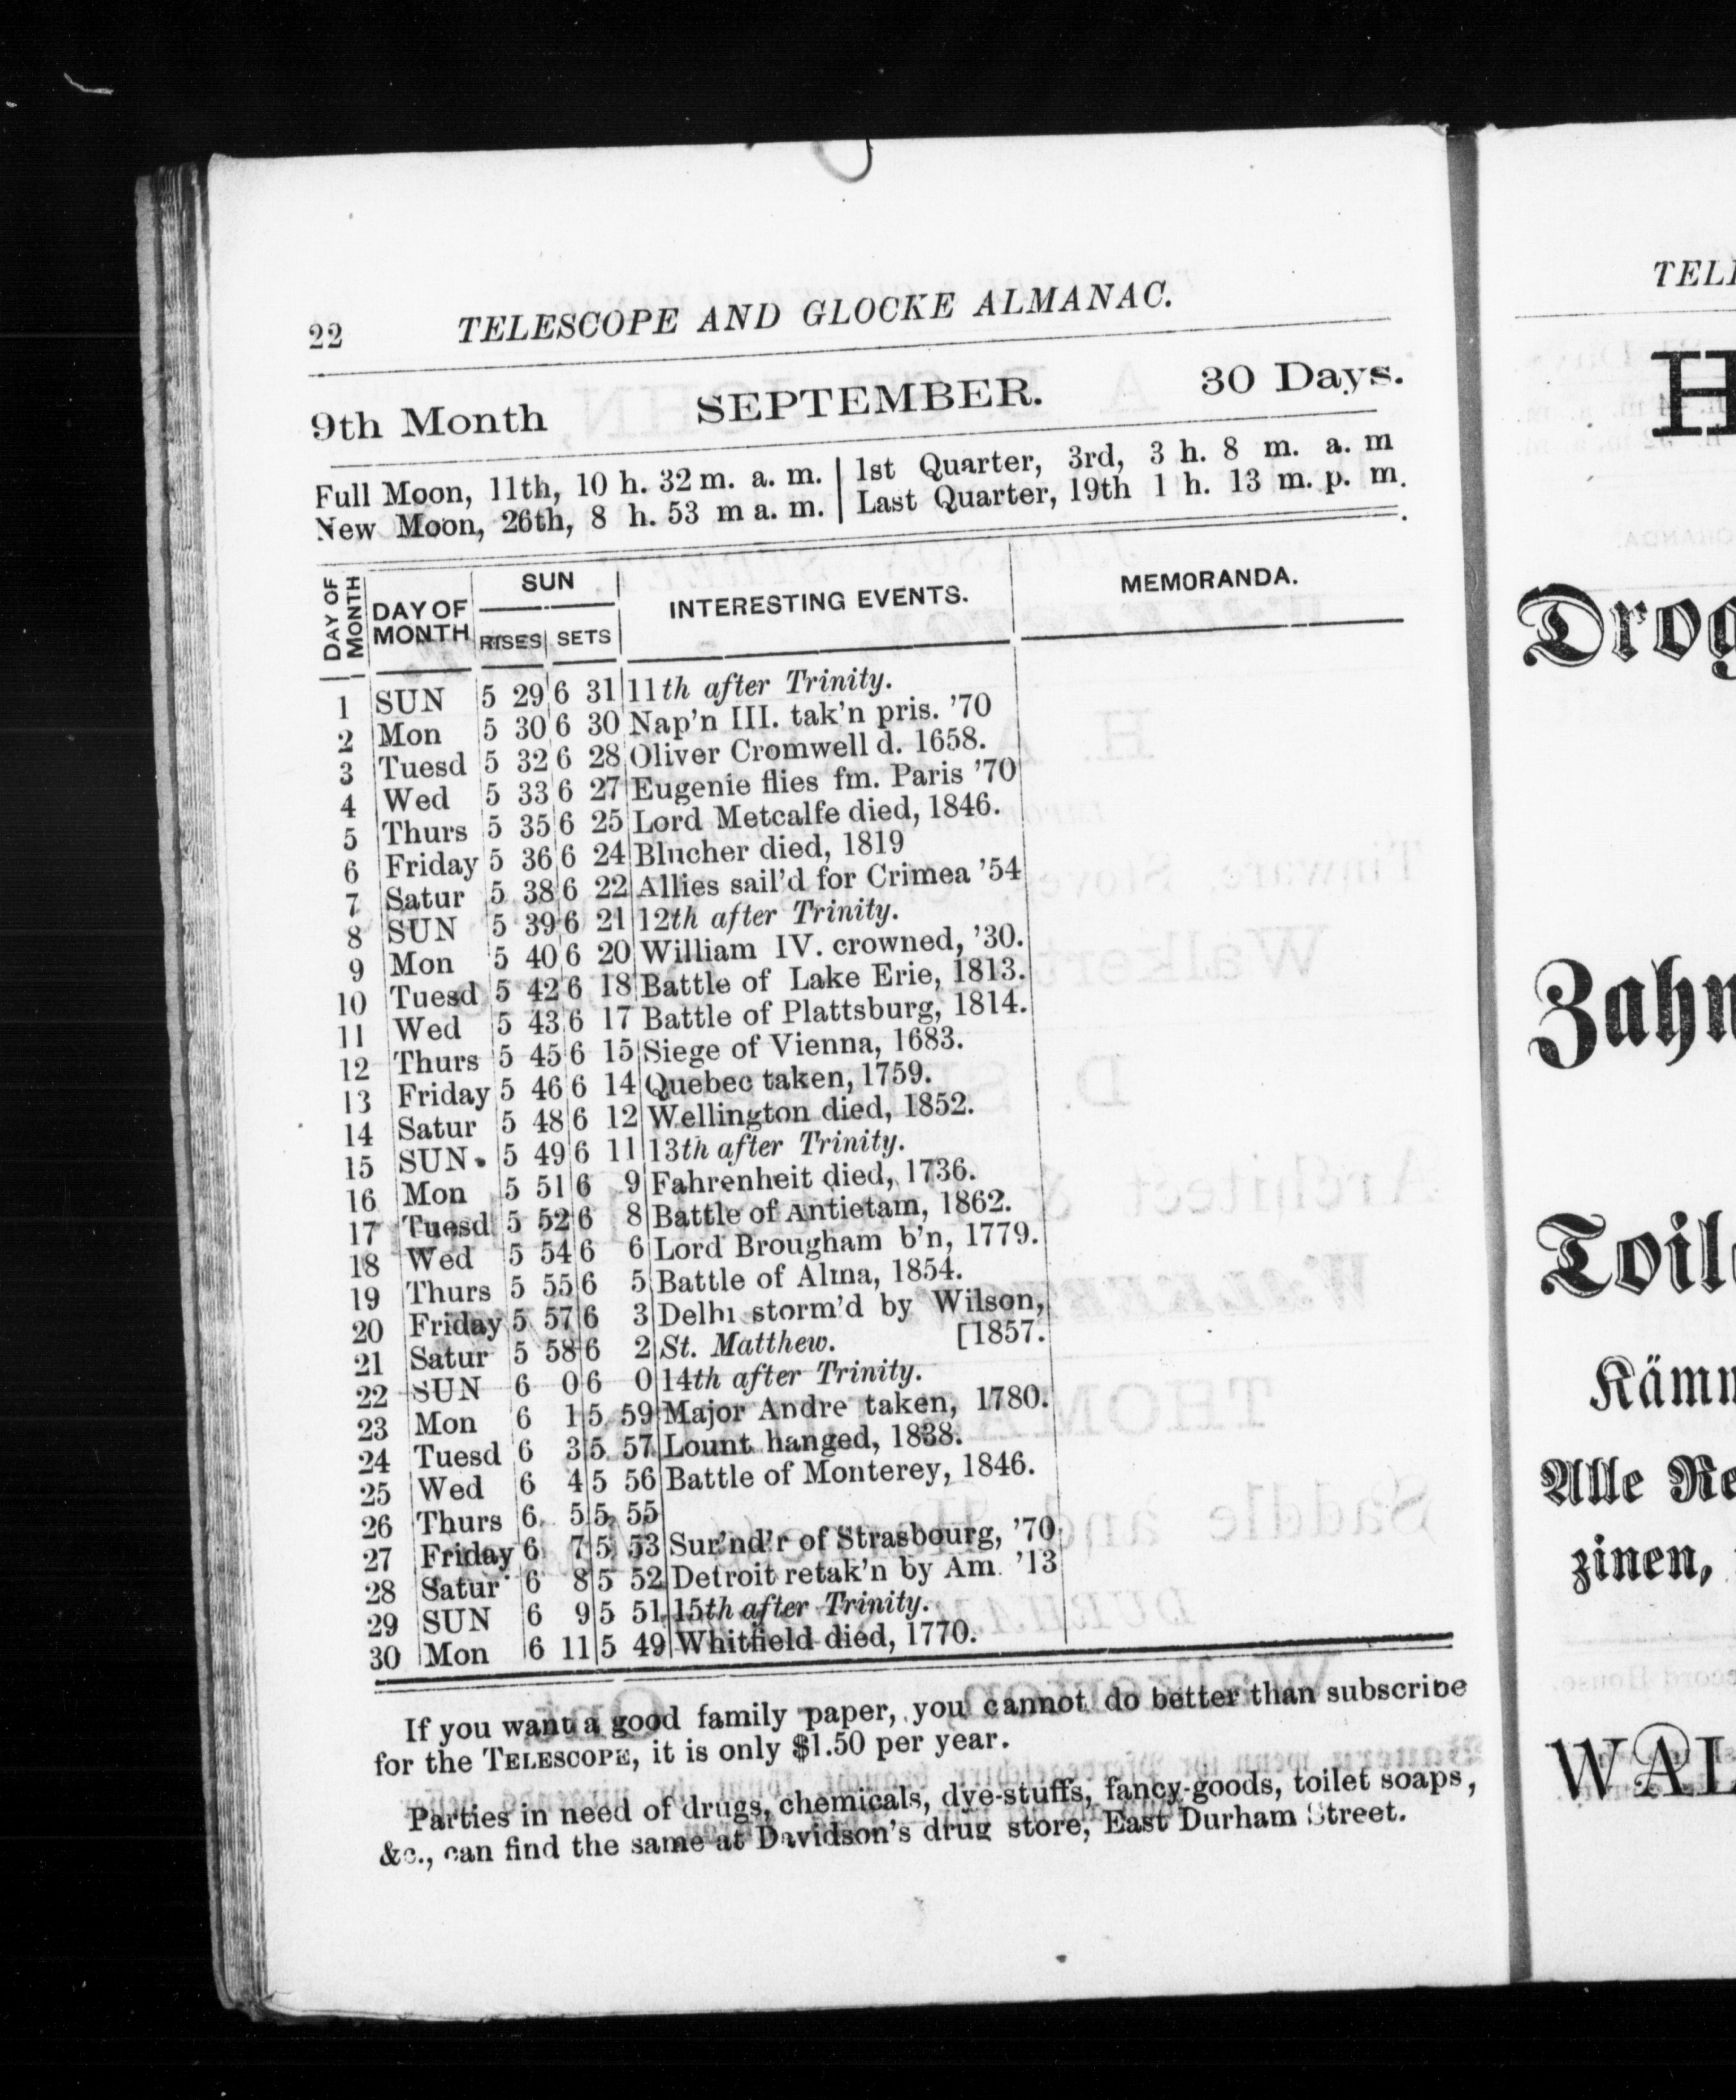 22 TELESCOPE AND GLOCKE ALMANAC.
9th Month SEPTEMBER. 30 Days.
Full Moon, 11th, 10 h. 32 m. a. m. | 1st Quarter, 3rd, 3 h. 8 m. a. m
New Moon, 26th, 8 h. 53 m a. m. | Last Quarter, 19th 1 h. 13 m. p. m.
DAY OF MONTH | DAY OF MONTH | SUN RISES | SETS | INTERESTING EVENTS. | MEMORANDA.
1 SUN 5 29 6 31 11th after Trinity.
2 Mon 5 30 6 30 Nap'n III. tak'n pris. '70
3 Tuesd 5 32 6 28 Oliver Cromwell d. 1658.
4 Wed 5 33 6 27 Eugenie flies fm. Paris '70
5 Thurs 5 35 6 25 Lord Metcalfe died, 1846.
6 Friday 5 36 6 24 Blucher died, 1819
7 Satur 5 38 6 22 Allies sail'd for Crimea '54
8 SUN 5 39 6 21 12th after Trinity.
9 Mon 5 40 6 20 William IV. crowned, '30.
10 Tuesd 5 42 6 18 Battle of Lake Erie, 1813.
11 Wed 5 43 6 17 Battle of Plattsburg, 1814.
12 Thurs 5 45 6 15 Siege of Vienna, 1683.
13 Friday 5 46 6 14 Quebec taken, 1759.
14 Satur 5 48 6 12 Wellington died, 1852.
15 SUN. 5 49 6 11 13th after Trinity.
16 Mon 5 51 6 9 Fahrenheit died, 1736.
17 Tuesd 5 52 6 8 Battle of Antietam, 1862.
18 Wed 5 54 6 6 Lord Brougham b'n, 1779.
19 Thurs 5 55 6 5 Battle of Alma, 1854.
20 Friday 5 57 6 3 Delhi storm'd by Wilson,
21 Satur 5 58 6 2 St. Matthew. [1857.
22 SUN 6 0 6 0 14th after Trinity.
23 Mon 6 1 5 59 Major Andre taken, 1780.
24 Tuesd 6 3 5 57 Lount hanged, 1838.
25 Wed 6 4 5 56 Battle of Monterey, 1846.
26 Thurs 6 5 5 55
27 Friday 6 7 5 53 Sur'nd'r of Strasbourg, '70
28 Satur 6 8 5 52 Detroit retak'n by Am. '13
29 SUN 6 9 5 51 15th after Trinity.
30 Mon 6 11 5 49 Whitfield died, 1770.
If you want a good family paper, you cannot do better than subscribe
for the TELESCOPE, it is only $1.50 per year.
Parties in need of drugs, chemicals, dye-stuffs, fancy-goods, toilet soaps,
&c., can find the same at Davidson's drug store, East Durham Street.
Alle
zinen,